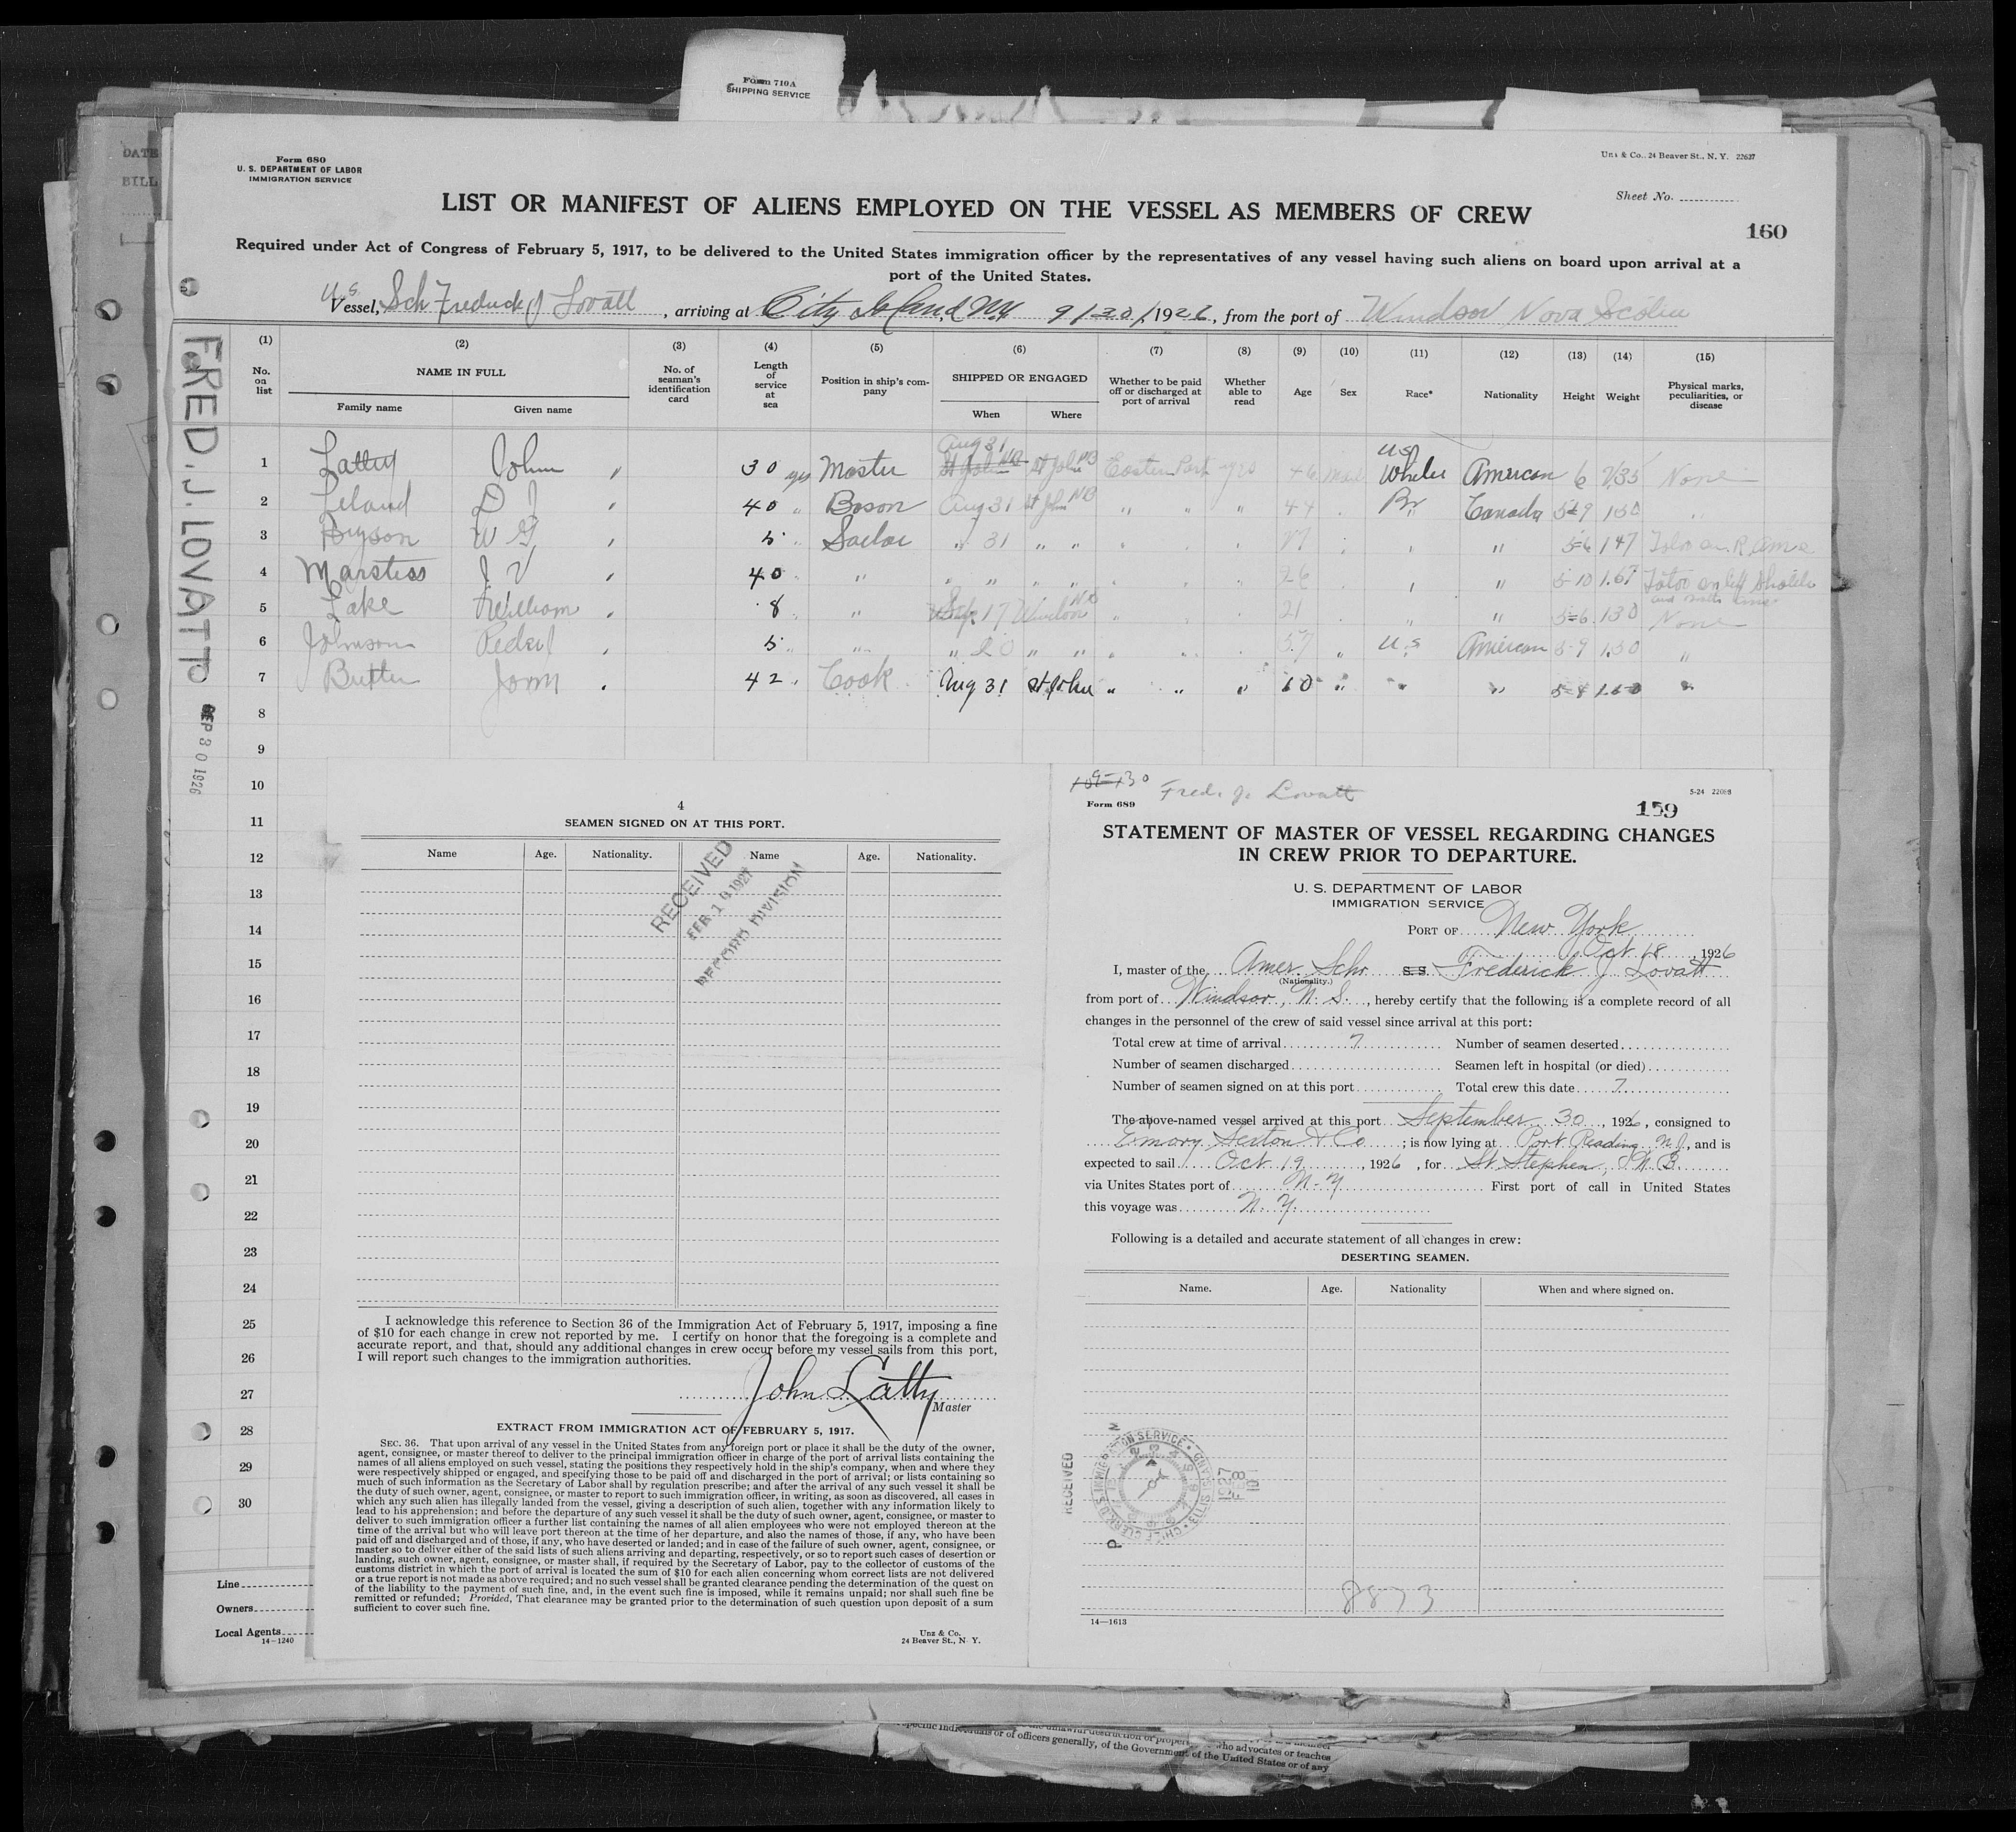 Form 710A
SHIPPING SERVICE
DATE
BILL
Form 680
U. S. DEPARTMENT OF LABOR
IMMIGRATION SERVICE
Unz & Co., 24 Beaver St., N. Y. 22637
Sheet No.
LIST OR MANIFEST OF ALIENS EMPLOYED ON THE VESSEL AS MEMBERS OF CREW
160
Required under Act of Congress of February 5, 1917, to be delivered to the United States immigration officer by the representatives of any vessel having such aliens on board upon arrival at a
port of the United States.
U.S.
Vessel, Sch Fredrick J Lovatt, arriving at City Island NY 9/30/1926, from the port of Windsor Nova Scotia
FRED. J. LOVATT
SEP 30 1926
(1) (2) (3) (4) (5) (6) (7) (8) (9) (10) (11) (12) (13) (14) (15)
No. on list
NAME IN FULL
Family name Given name
No. of seaman's identification card
Length of service at sea
Position in ship's company
SHIPPED OR ENGAGED
When Where
Whether to be paid off or discharged at port of arrival
Whether able to read
Age Sex Race* Nationality Height Weight
Physical marks, peculiarities, or disease
Aug 31 US
1 Latty John " 30 yrs Master St John NB St John NB yes 46 Male White American 6 235 None
2 Leland D J " 40 " Boson Aug 31 St John NB " " " 44 " Br Canada 5-9 150 "
3 Bryson W G " 5 " Sailor " 31 " " " " " " " " 5-6 147
4 J V " 40 " " " " " " " " " 26 " " " 5-10 167 Tatoo on left
5 Lake William " 8 " " Sep 17 Windsor " " " 21 " " " 5-6 130 None
6 Johnson " 5 " " " 20 " " " " " 57 " U.S American 5-9 150 "
7 John " 42 " Cook Aug 31 St John " " " 60 " " " "
8
9
10
11
12
13
14
15
16
17
18
19
20
21
22
23
24
25
26
27
28
29
30
Line
Owners
Local Agents
14—1240
4
SEAMEN SIGNED ON AT THIS PORT.
Name Age. Nationality. Name Age. Nationality.
RECEIVED
FEB 10 1927
RECORD DIVISION
I acknowledge this reference to Section 36 of the Immigration Act of February 5, 1917, imposing a fine
of $10 for each change in crew not reported by me. I certify on honor that the foregoing is a complete and
accurate report, and that, should any additional changes in crew occur before my vessel sails from this port,
I will report such changes to the immigration authorities.
John Latty
Master
EXTRACT FROM IMMIGRATION ACT OF FEBRUARY 5, 1917.
SEC. 36. That upon arrival of any vessel in the United States from any foreign port or place it shall be the duty of the owner,
agent, consignee, or master thereof to deliver to the principal immigration officer in charge of the port of arrival lists containing the
names of all aliens employed on such vessel, stating the positions they respectively hold in the ship's company, when and where they
were respectively shipped or engaged, and specifying those to be paid off and discharged in the port of arrival; or lists containing so
much of such information as the Secretary of Labor shall by regulation prescribe; and after the arrival of any such vessel it shall be
the duty of such owner, agent, consignee, or master to report to such immigration officer, in writing, as soon as discovered, all cases in
which any such alien has illegally landed from the vessel, giving a description of such alien, together with any information likely to
lead to his apprehension; and before the departure of any such vessel it shall be the duty of such owner, agent, consignee, or master to
deliver to such immigration officer a further list containing the names of all alien employees who were not employed thereon at the
time of the arrival but who will leave port thereon at the time of her departure, and also the names of those, if any, who have been
paid off and discharged and of those, if any, who have deserted or landed; and in case of the failure of such owner, agent, consignee, or
master so to deliver either of the said lists of such aliens arriving and departing, respectively, or so to report such cases of desertion or
landing, such owner, agent, consignee, or master shall, if required by the Secretary of Labor, pay to the collector of customs of the
customs district in which the port of arrival is located the sum of $10 for each alien concerning whom correct lists are not delivered
or a true report is not made as above required; and no such vessel shall be granted clearance pending the determination of the quest on
of the liability to the payment of such fine, and, in the event such fine is imposed, while it remains unpaid; nor shall such fine be
remitted or refunded; Provided, That clearance may be granted prior to the determination of such question upon deposit of a sum
sufficient to cover such fine.
Unz & Co.
24 Beaver St., N. Y.
109-130 Fred. J. Lovatt
5-24 22068
Form 689
159
STATEMENT OF MASTER OF VESSEL REGARDING CHANGES
IN CREW PRIOR TO DEPARTURE.
U. S. DEPARTMENT OF LABOR
IMMIGRATION SERVICE
PORT OF New York
Oct 18, 1926
I, master of the Amer. Schr S.S. Frederick J Lovatt
(Nationality.)
from port of Windsor, N. S., hereby certify that the following is a complete record of all
changes in the personnel of the crew of said vessel since arrival at this port:
Total crew at time of arrival 7 Number of seamen deserted
Number of seamen discharged Seamen left in hospital (or died)
Number of seamen signed on at this port Total crew this date 7
The above-named vessel arrived at this port September 30, 1926, consigned to
Emory Sexton & Co; is now lying at Port Reading N J, and is
expected to sail Oct 19, 1926, for St Stephen, N B
via Unites States port of N. Y First port of call in United States
this voyage was N. Y.
Following is a detailed and accurate statement of all changes in crew:
DESERTING SEAMEN.
Name. Age. Nationality When and where signed on.
RECEIVED
U.S. IMMIGRATION SERVICE · ELLIS ISLAND · CHIEF CLERK
1927
FEB 8
10
8873
14—1613
specific individuals or of officers generally, of the Government of the United States or of any
who advocates or teaches